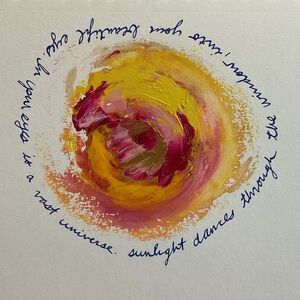 sunlight dances through the window, into your beautiful eyes. In your eyes is a vast universe.